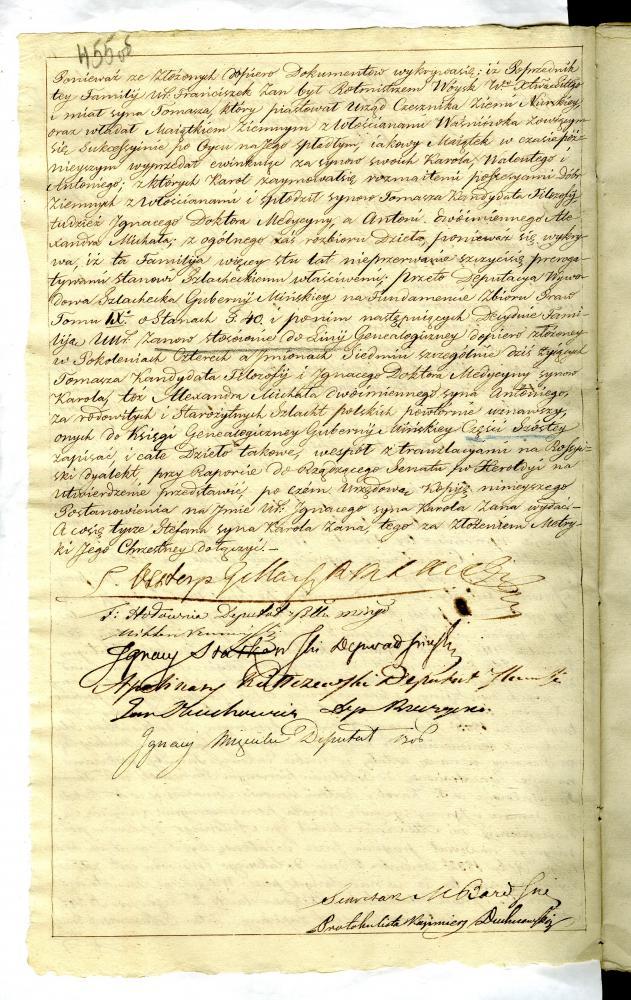 455 os
Ponieważ ze złożonych dopiero Dokumentow wykrywasię; iż Poprzednik
tey Familij Ur. Franciszek Zan był Rotmistrzem Woysk W°
i miał syna Tomasza, który piastował Urząd Cześnika Ziemi Nurskiey,
oraz władał Maiątkiem Ziemnym z Włościanami Waśniowka zowiącym
się, Sukcessyinie po Oycu na Jego spadłym, iakowy Maiątek w czasie póź-
nieyszym wyprzedał ewinkuiąc za synow swoich Karola, Walentego i
Antoniego; z których Karol zaymowałsię rozmaitemi possesyami Dóbr
Ziemnych z Włościanami i spłodził synow Tomasza Kandydata Filozofij
tudzież Ignacego Doktora Medycyny, a Antoni dwóimiennego Ale-
xandra Michała; z ogólnego zaś rozbioru Dzieła, ponieważ się wykry-
wa, iż ta Familija więcey stu lat nieprzerwanie szczycisię preroga-
tywami stanowi Szlacheckiemu właściwemi; przeto Deputacya Wywo-
dowa Szlachecka Gubernij Mińskiey na Fundamencie Zbioru Praw
Tomu IX° o Stanach §. 40. i po nim następuiących Decyduie Fami-
lija Urr. Zanow stosownie do Linij Genealogiczney dopiero złożoney
w Pokoleniach Czterech a Imionach Siedmiu szczególnie dziś żyiących
Tomasza Kandydata Filozofij i Ignacego Doktora Medycyny synow
Karola, toż Alexandra Michała dwóimiennego syna Antoniego,
za rodowitych i Starożytnych Szlacht polskich powtornie uznawszy,
onych do Księgi Genealogiczney Gubernij Mińskiey Części Szóstey
zapisać i całe Dzieło takowe, wespoł z translacyami na Rossyi-
ski dyalekt, przy Raporcie do Rządzącego Senatu po Heroldyi na
Utwierdzenie przedstawić, po czém Urzędową Kopiję ninieyszego
Postanowienia na Imie Ur. Ignacego syna Karola Zana wydać.-
A cosię tycze Stefana syna Karola Zana, tego za złożeniem Metry-
ki Jego Chrzestney dołączyć.-
F: Hołownia Deputat
Ignacy Deputat
Apolinary Deputat
Jan
Ignacy Deputat
Sekretarz
Protokulista Kazimierz